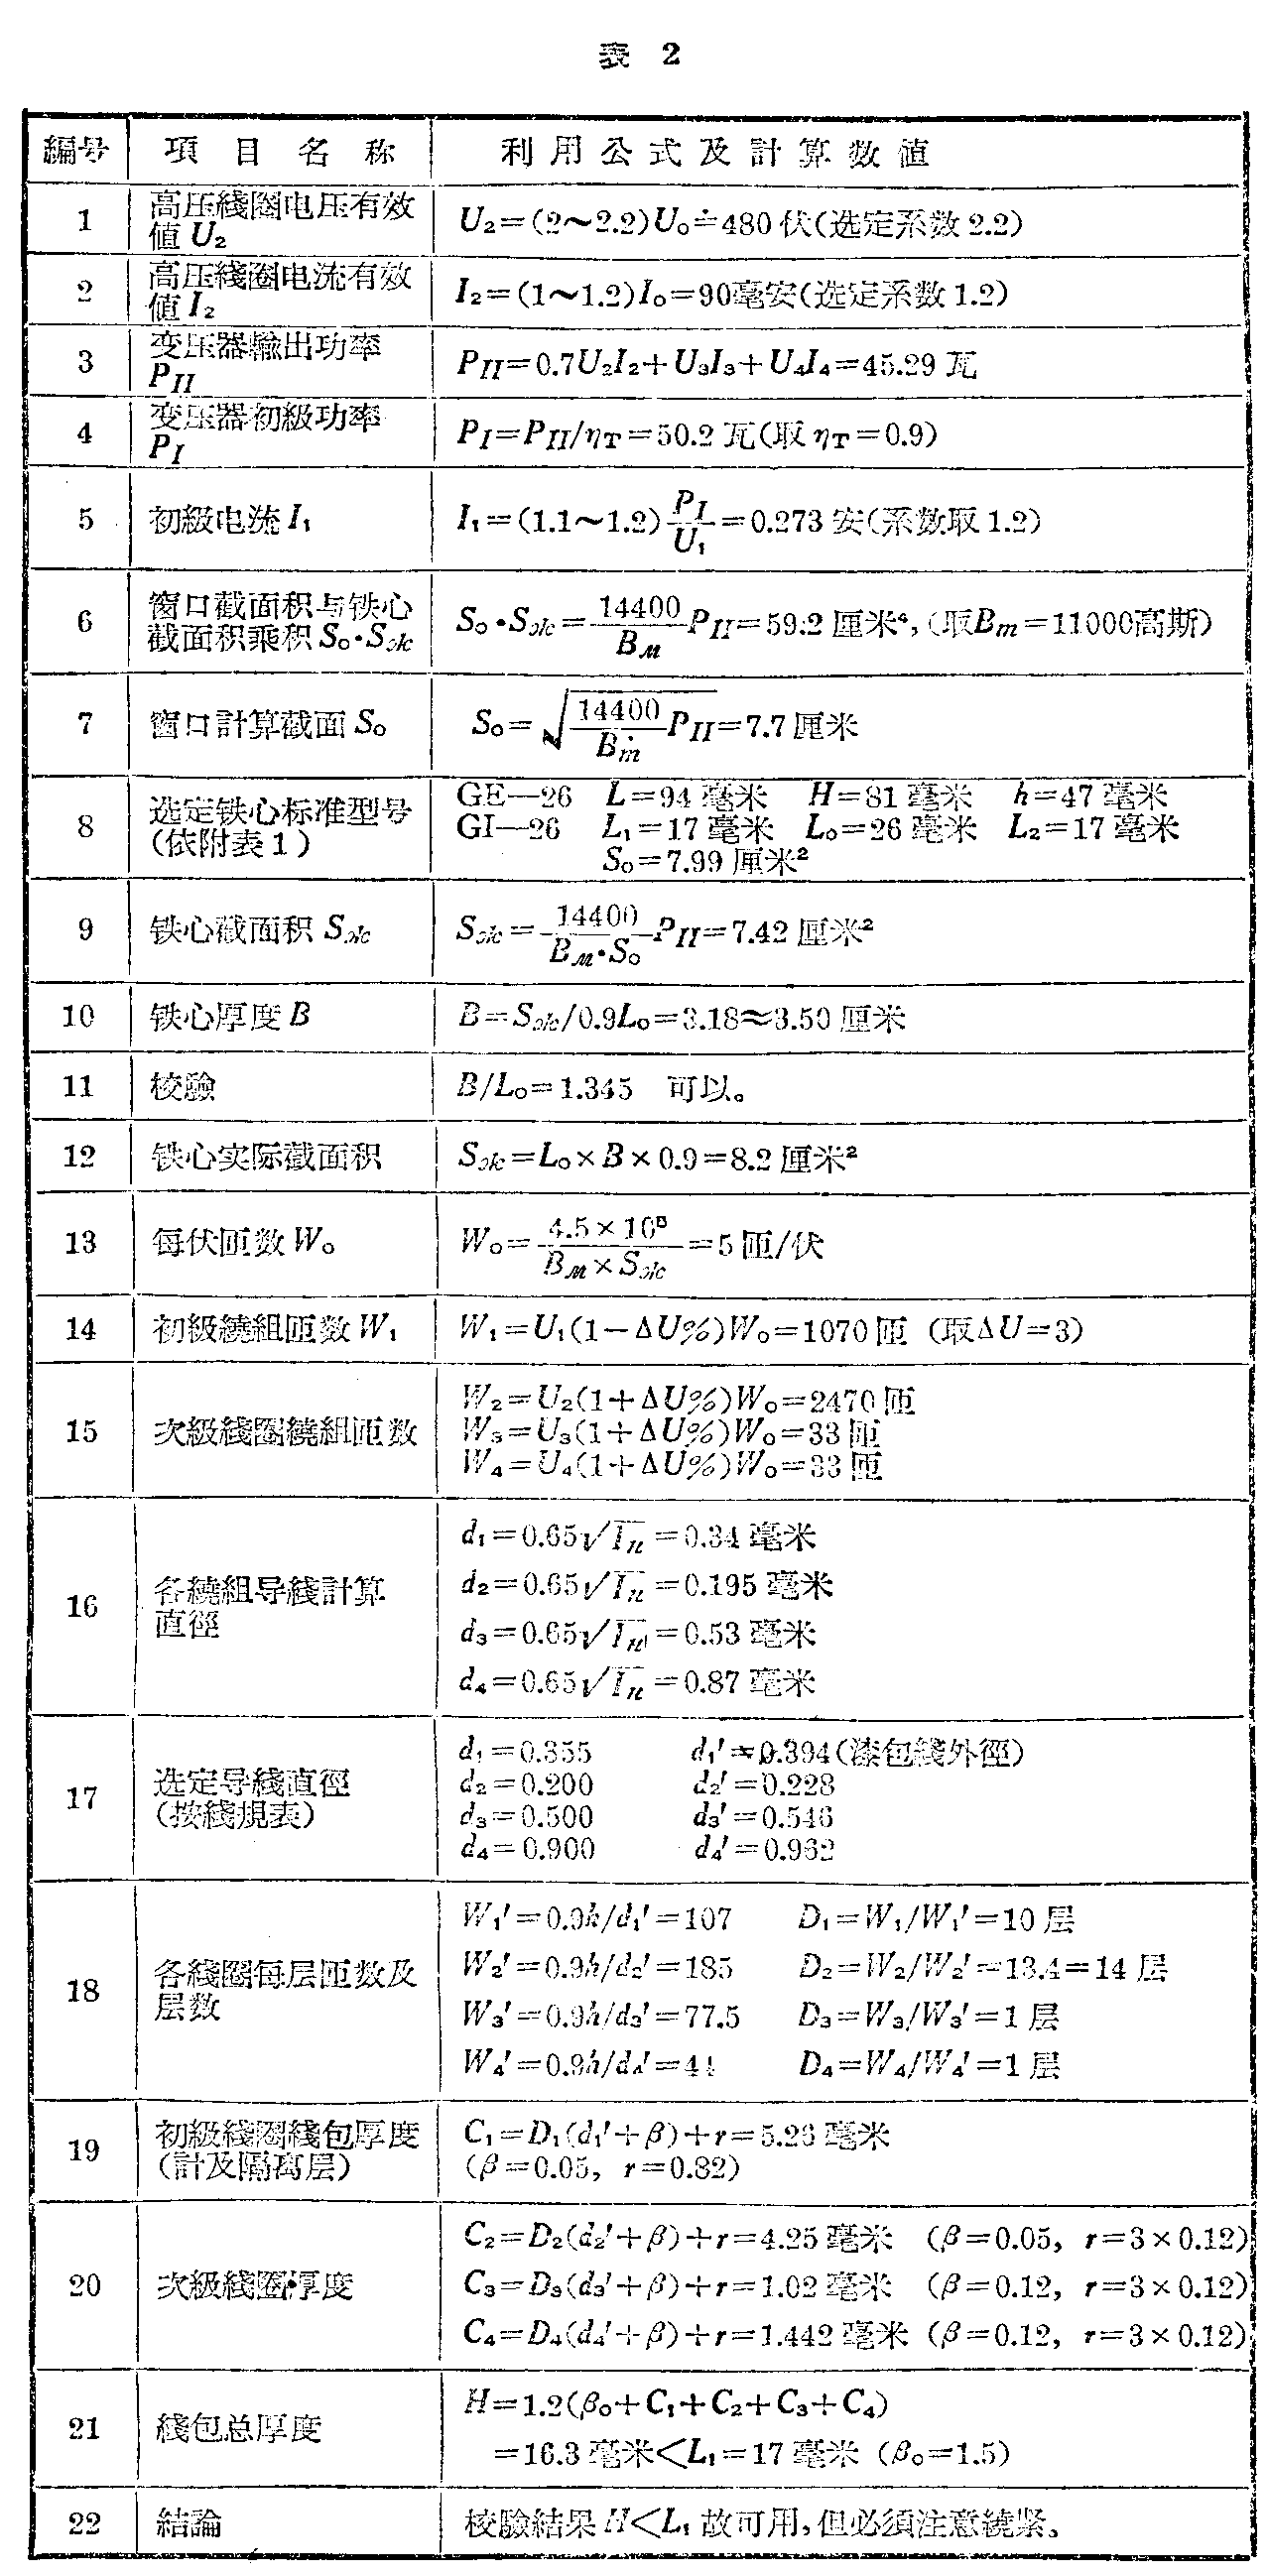 表 2
編号 項目名称 利用公式及計算数値
1 高压綫圈电压有效値U₂ U₂=(2～2.2)U₀≐480伏(选定系数2.2)
2 高压綫圈电流有效値I₂ I₂=(1～1.2)I₀=90毫安(选定系数1.2)
3 变压器輸出功率P_II P_II=0.7U₂I₂+U₃I₃+U₄I₄=45.29瓦
4 变压器初級功率P_I P_I=P_II/η_T=50.2瓦(取η_T=0.9)
5 初級电流I₁ I₁=(1.1～1.2)P_I/U₁=0.273安(系数取1.2)
6 窗口截面积与铁心截面积乘积S₀·Sж S₀·Sж=14400/Bм P_II=59.2厘米⁴,(取Bm=11000高斯)
7 窗口計算截面S₀ S₀=√(14400/Bm P_II)=7.7厘米
8 选定铁心标准型号(依附表1) GE—26 L=94毫米 H=81毫米 h=47毫米
GI—26 L₁=17毫米 L₀=26毫米 L₂=17毫米
S₀=7.99厘米²
9 铁心截面积Sж Sж=14400/(Bм·S₀) P_II=7.42厘米²
10 铁心厚度B B=Sж/0.9L₀=3.18≈3.50厘米
11 校驗 B/L₀=1.345 可以。
12 铁心实际截面积 Sж=L₀×B×0.9=8.2厘米²
13 每伏匝数W₀ W₀=4.5×10⁵/(Bм×Sж)=5匝/伏
14 初級繞組匝数W₁ W₁=U₁(1−ΔU%)W₀=1070匝 (取ΔU=3)
15 次級綫圈繞組匝数 W₂=U₂(1+ΔU%)W₀=2470匝
W₃=U₃(1+ΔU%)W₀=33匝
W₄=U₄(1+ΔU%)W₀=33匝
16 各繞組导綫計算直徑 d₁=0.65√In=0.34毫米
d₂=0.65√In=0.195毫米
d₃=0.65√In=0.53毫米
d₄=0.65√In=0.87毫米
17 选定导綫直徑(按綫規表) d₁=0.355 d₁′=0.394(漆包綫外徑)
d₂=0.200 d₂′=0.228
d₃=0.500 d₃′=0.546
d₄=0.900 d₄′=0.962
18 各綫圈每层匝数及层数 W₁′=0.9h/d₁′=107 D₁=W₁/W₁′=10层
W₂′=0.9h/d₂′=185 D₂=W₂/W₂′=13.4=14层
W₃′=0.9h/d₃′=77.5 D₃=W₃/W₃′=1层
W₄′=0.9h/d₄′=44 D₄=W₄/W₄′=1层
19 初級綫圈綫包厚度(計及隔离层) C₁=D₁(d₁′+β)+r=5.26毫米
(β=0.05, r=0.82)
20 次級綫圈厚度 C₂=D₂(d₂′+β)+r=4.25毫米 (β=0.05, r=3×0.12)
C₃=D₃(d₃′+β)+r=1.02毫米 (β=0.12, r=3×0.12)
C₄=D₄(d₄′+β)+r=1.442毫米 (β=0.12, r=3×0.12)
21 綫包总厚度 H=1.2(β₀+C₁+C₂+C₃+C₄)
=16.3毫米<L₁=17毫米 (β₀=1.5)
22 結論 校驗結果H<L₁故可用,但必須注意繞紧。